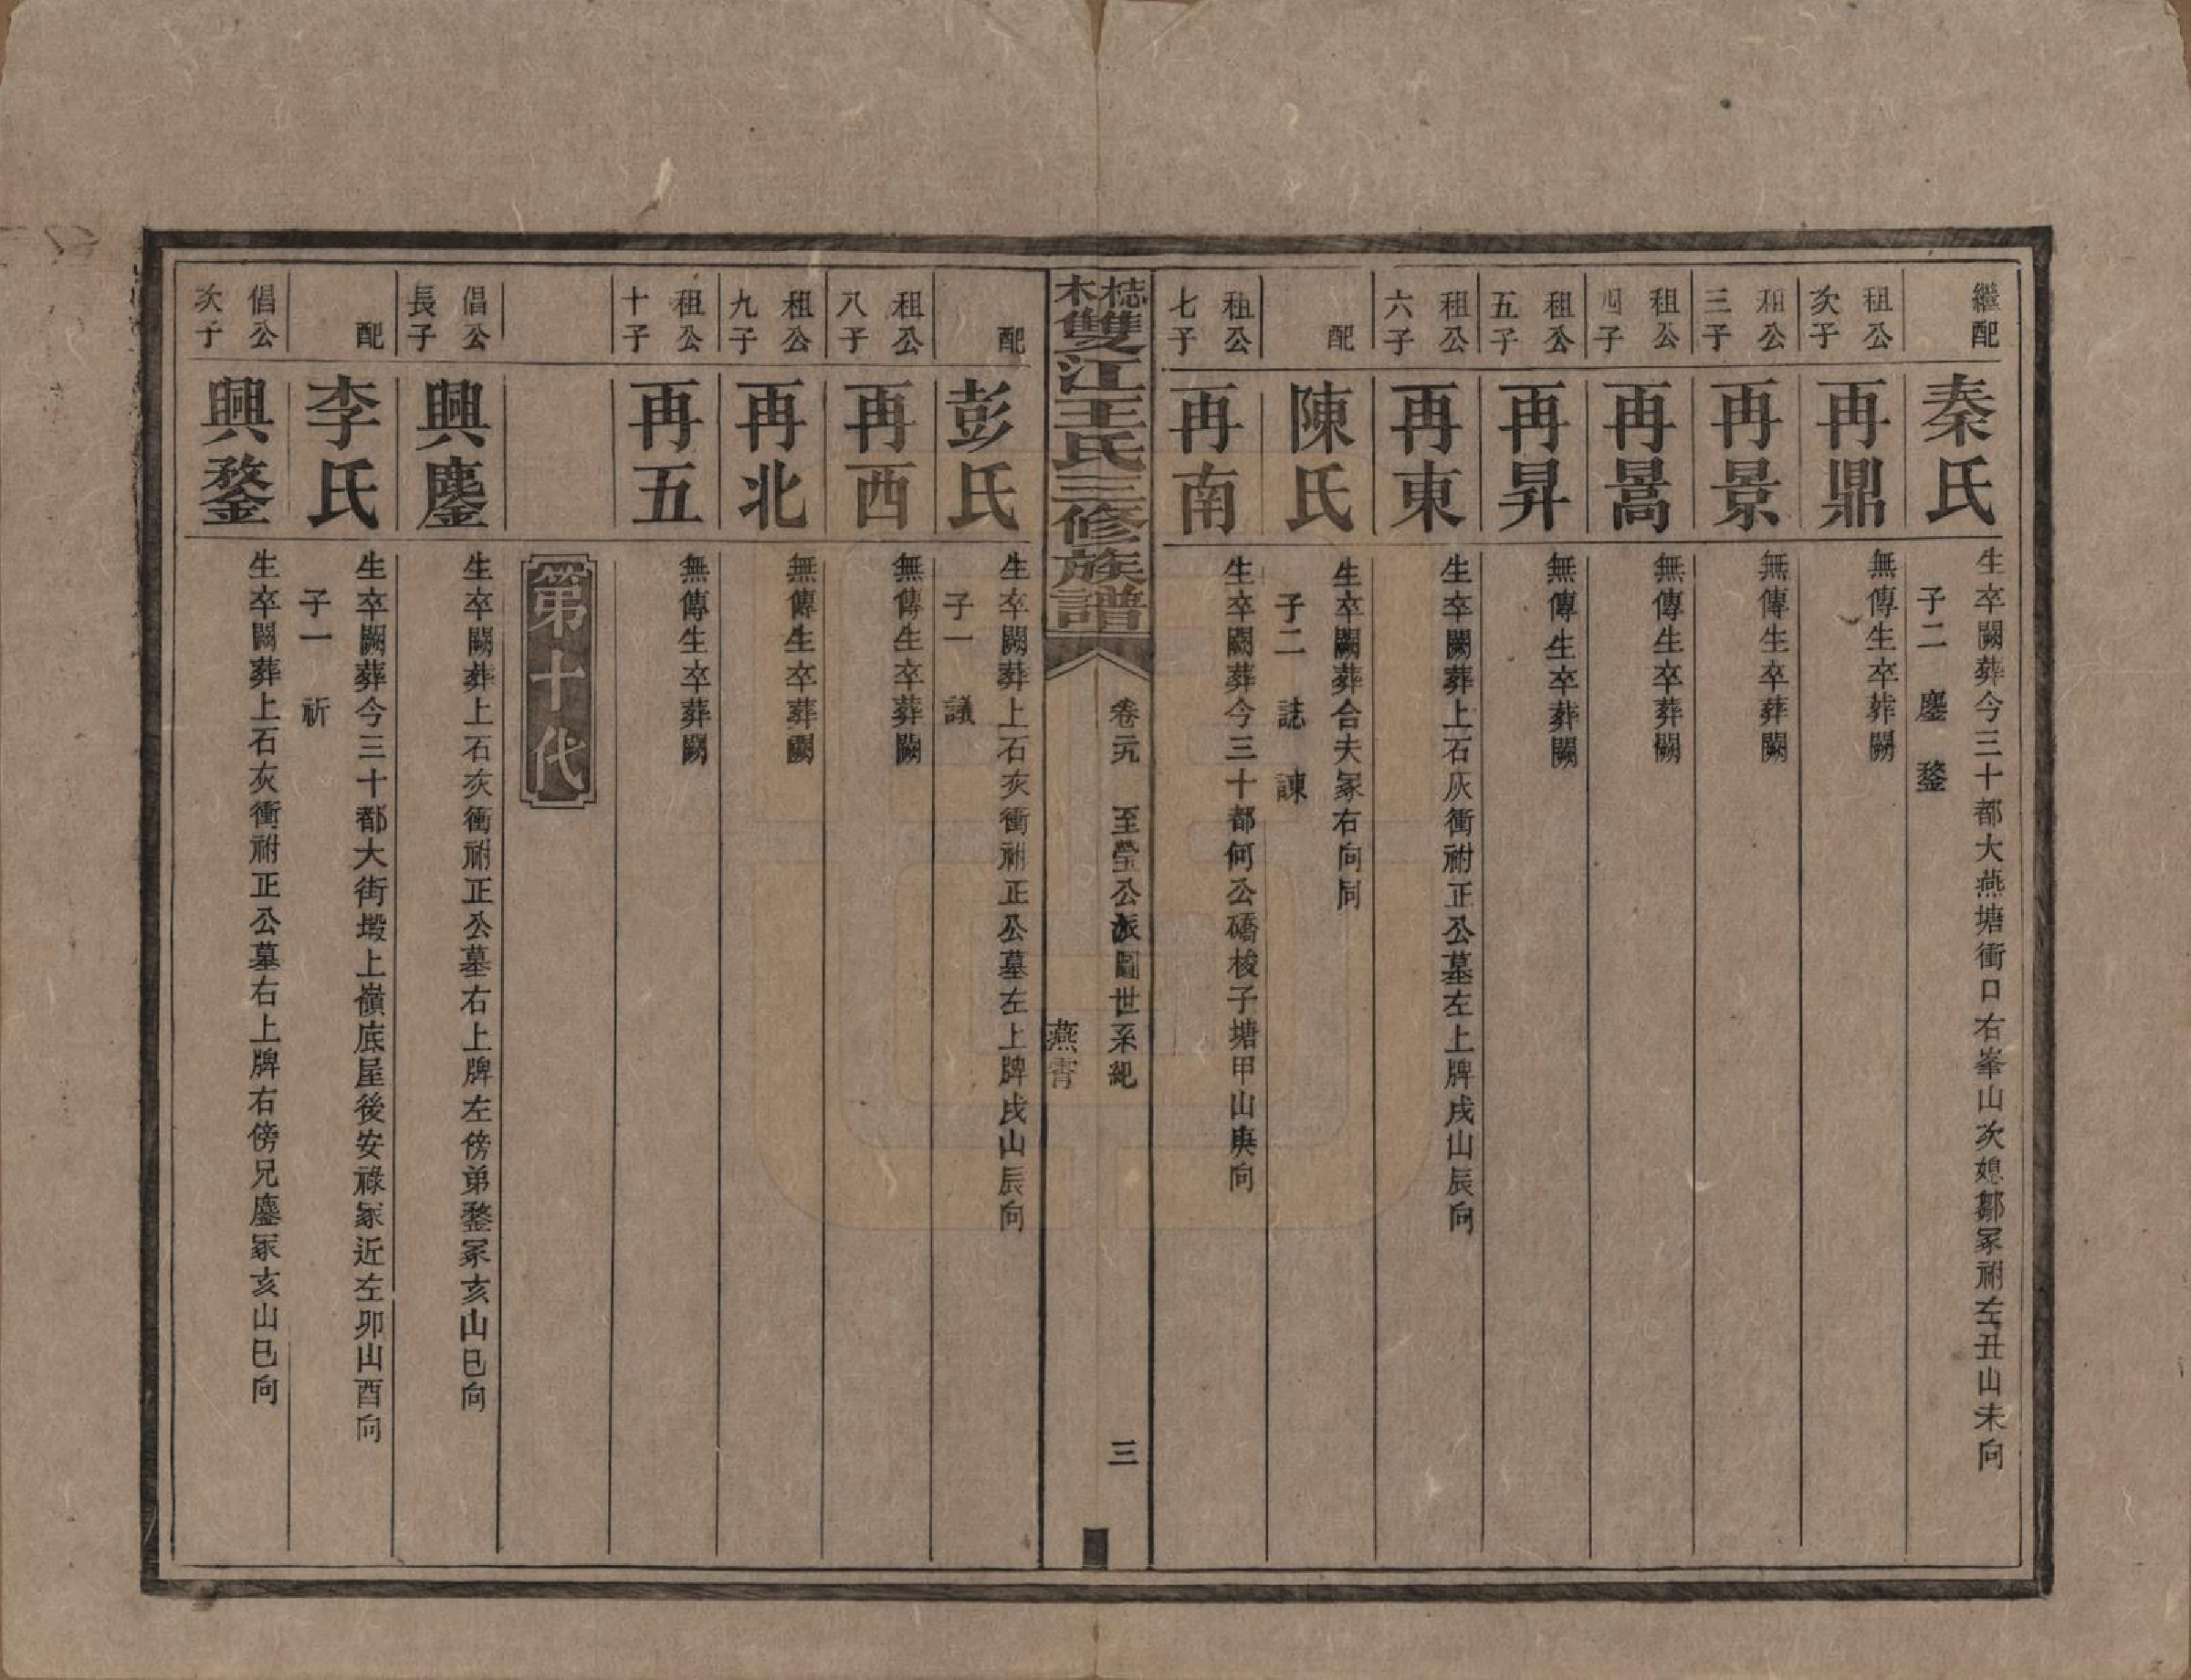 繼配
秦氏
生卒闕葬今三十都大燕塘衝口右峯山次媳鄒冡祔左丑山未向
子二　鏖　鍪
租公次子
再鼎
無傳生卒葬闕
租公三子
再景
無傳生卒葬闕
租公四子
再暠
無傳生卒葬闕
租公五子
再昇
無傳生卒葬闕
租公六子
再東
生卒闕葬上石灰衝祔正公墓左上牌戌山辰向
配
陳氏
生卒闕葬合夫冡右向同
子二　誌　諫
租公七子
再南
生卒闕葬今三十都何公礄梭子塘甲山庚向
梽木雙江王氏三修族譜
卷元　至瑩公派圖世系紀
三
燕霄
配
彭氏
生卒闕葬上石灰衝祔正公墓左上牌戌山辰向
子一　議
租公八子
再西
無傳生卒葬闕
租公九子
再北
無傳生卒葬闕
租公十子
再五
無傳生卒葬闕
第十代
倡公長子
興鏖
生卒闕葬上石灰衝祔正公墓右上牌左傍弟鍪冡亥山巳向
配
李氏
生卒闕葬今三十都大街塅上嶺底屋後安祿冡近左卯山酉向
子一　祈
倡公次子
興鍪
生卒闕葬上石灰衝祔正公墓右上牌右傍兄鏖冡亥山巳向